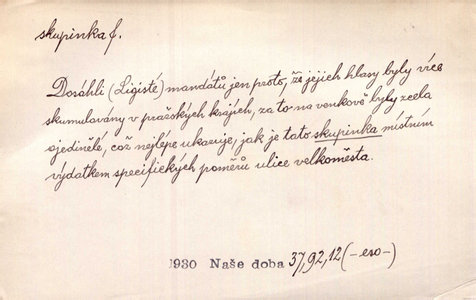 skupinka f.
Dosáhli (Ligisté) mandátů jen proto, že jejich hlasy byly více
skumulovány v pražských krajích, za to na venkově byly zcela
ojedinělé, což nejlépe ukazuje, jak je tato skupinka místním
výdatkem specifických poměrů ulice velkoměsta.
1930 Naše doba 37,92,12 (-eso-)